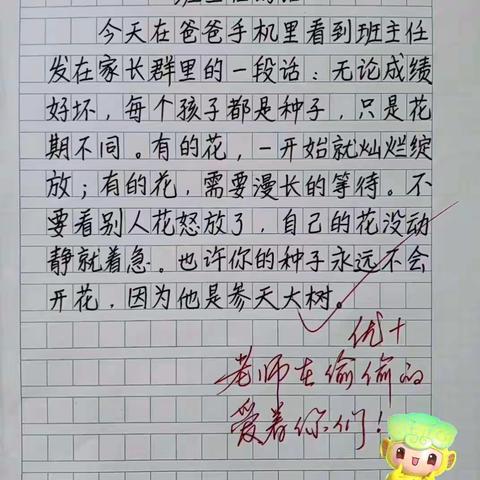 今天在爸爸手机里看到班主任
发在家长群里的一段话：无论成绩
好坏，每个孩子都是种子，只是花
期不同。有的花，一开始就灿烂绽
放；有的花，需要漫长的等待。不
要看别人花怒放了，自己的花没动
静就着急。也许你的种子永远不会
开花，因为他是参天大树。
优+
老师在偷偷的
爱着你们！